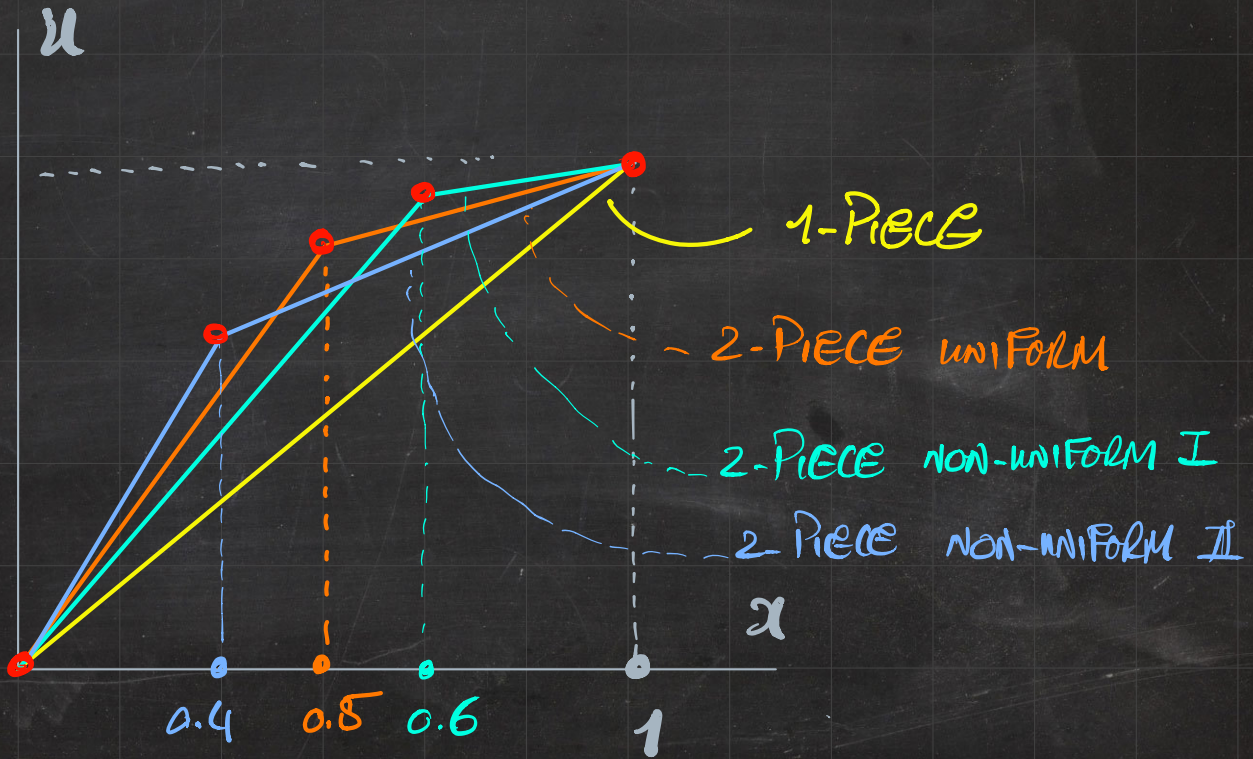 u
1-PIECE
2-PIECE UNIFORM
2-PIECE NON-UNIFORM I
2-PIECE NON-UNIFORM II
x
0.4 0.5 0.6 1